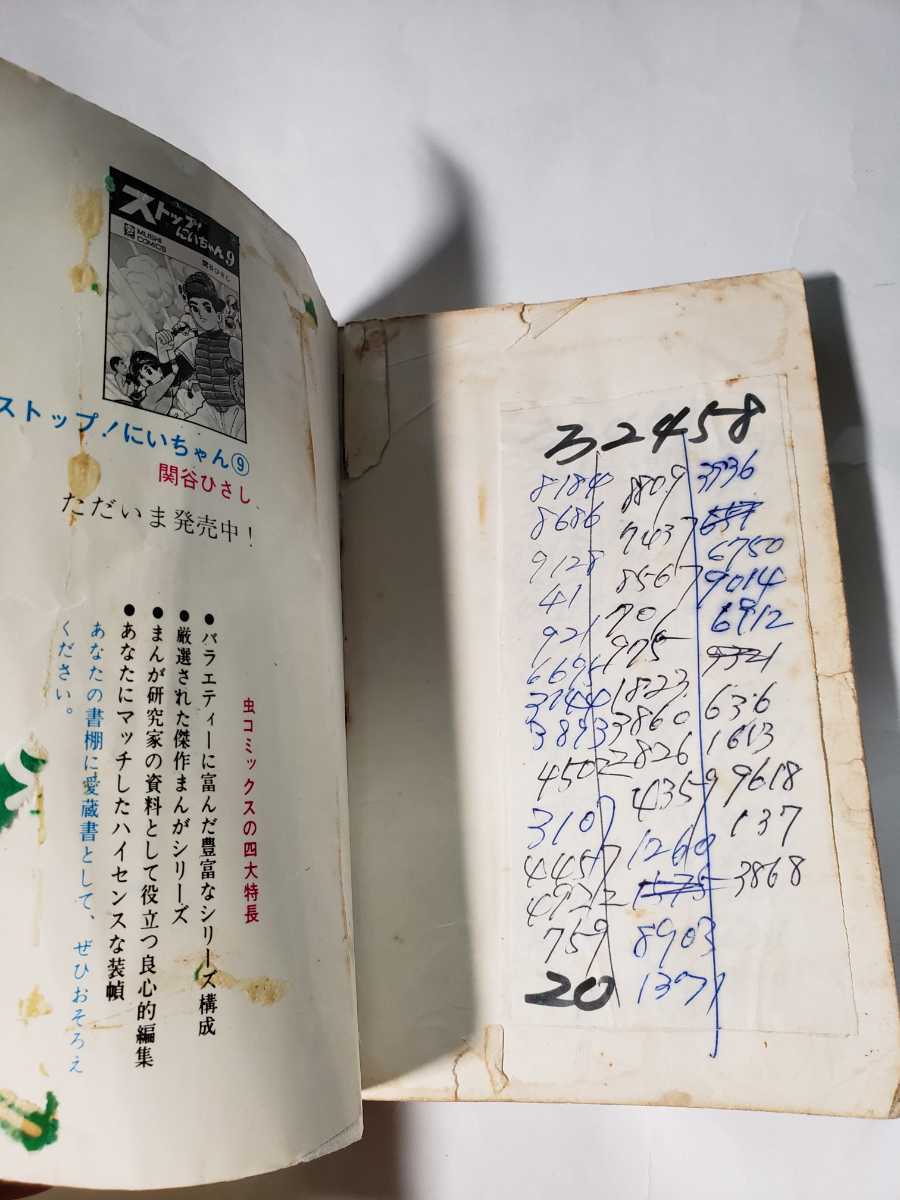 ストップ!
にいちゃん9
MUSHI
COMICS
関谷ひさし
ストップ!にいちゃん⑨
関谷ひさし
ただいま発売中!
虫コミックスの四大特長
●バラエティーに富んだ豊富なシリーズ構成
●厳選された傑作まんがシリーズ
●まんが研究家の資料として役立つ良心的編集
●あなたにマッチしたハイセンスな装幀
あなたの書棚に愛蔵書として、ぜひおそろえ
ください。
32458
8184
8686
9128
41
921
6695
3744
3893
4502
3107
4457
4922
759
20
8809
7437
8567
701
975
1823
3860
2826
4359
1260
1575
8903
1371
3736
6750
9014
6912
9321
636
1613
9618
137
3868